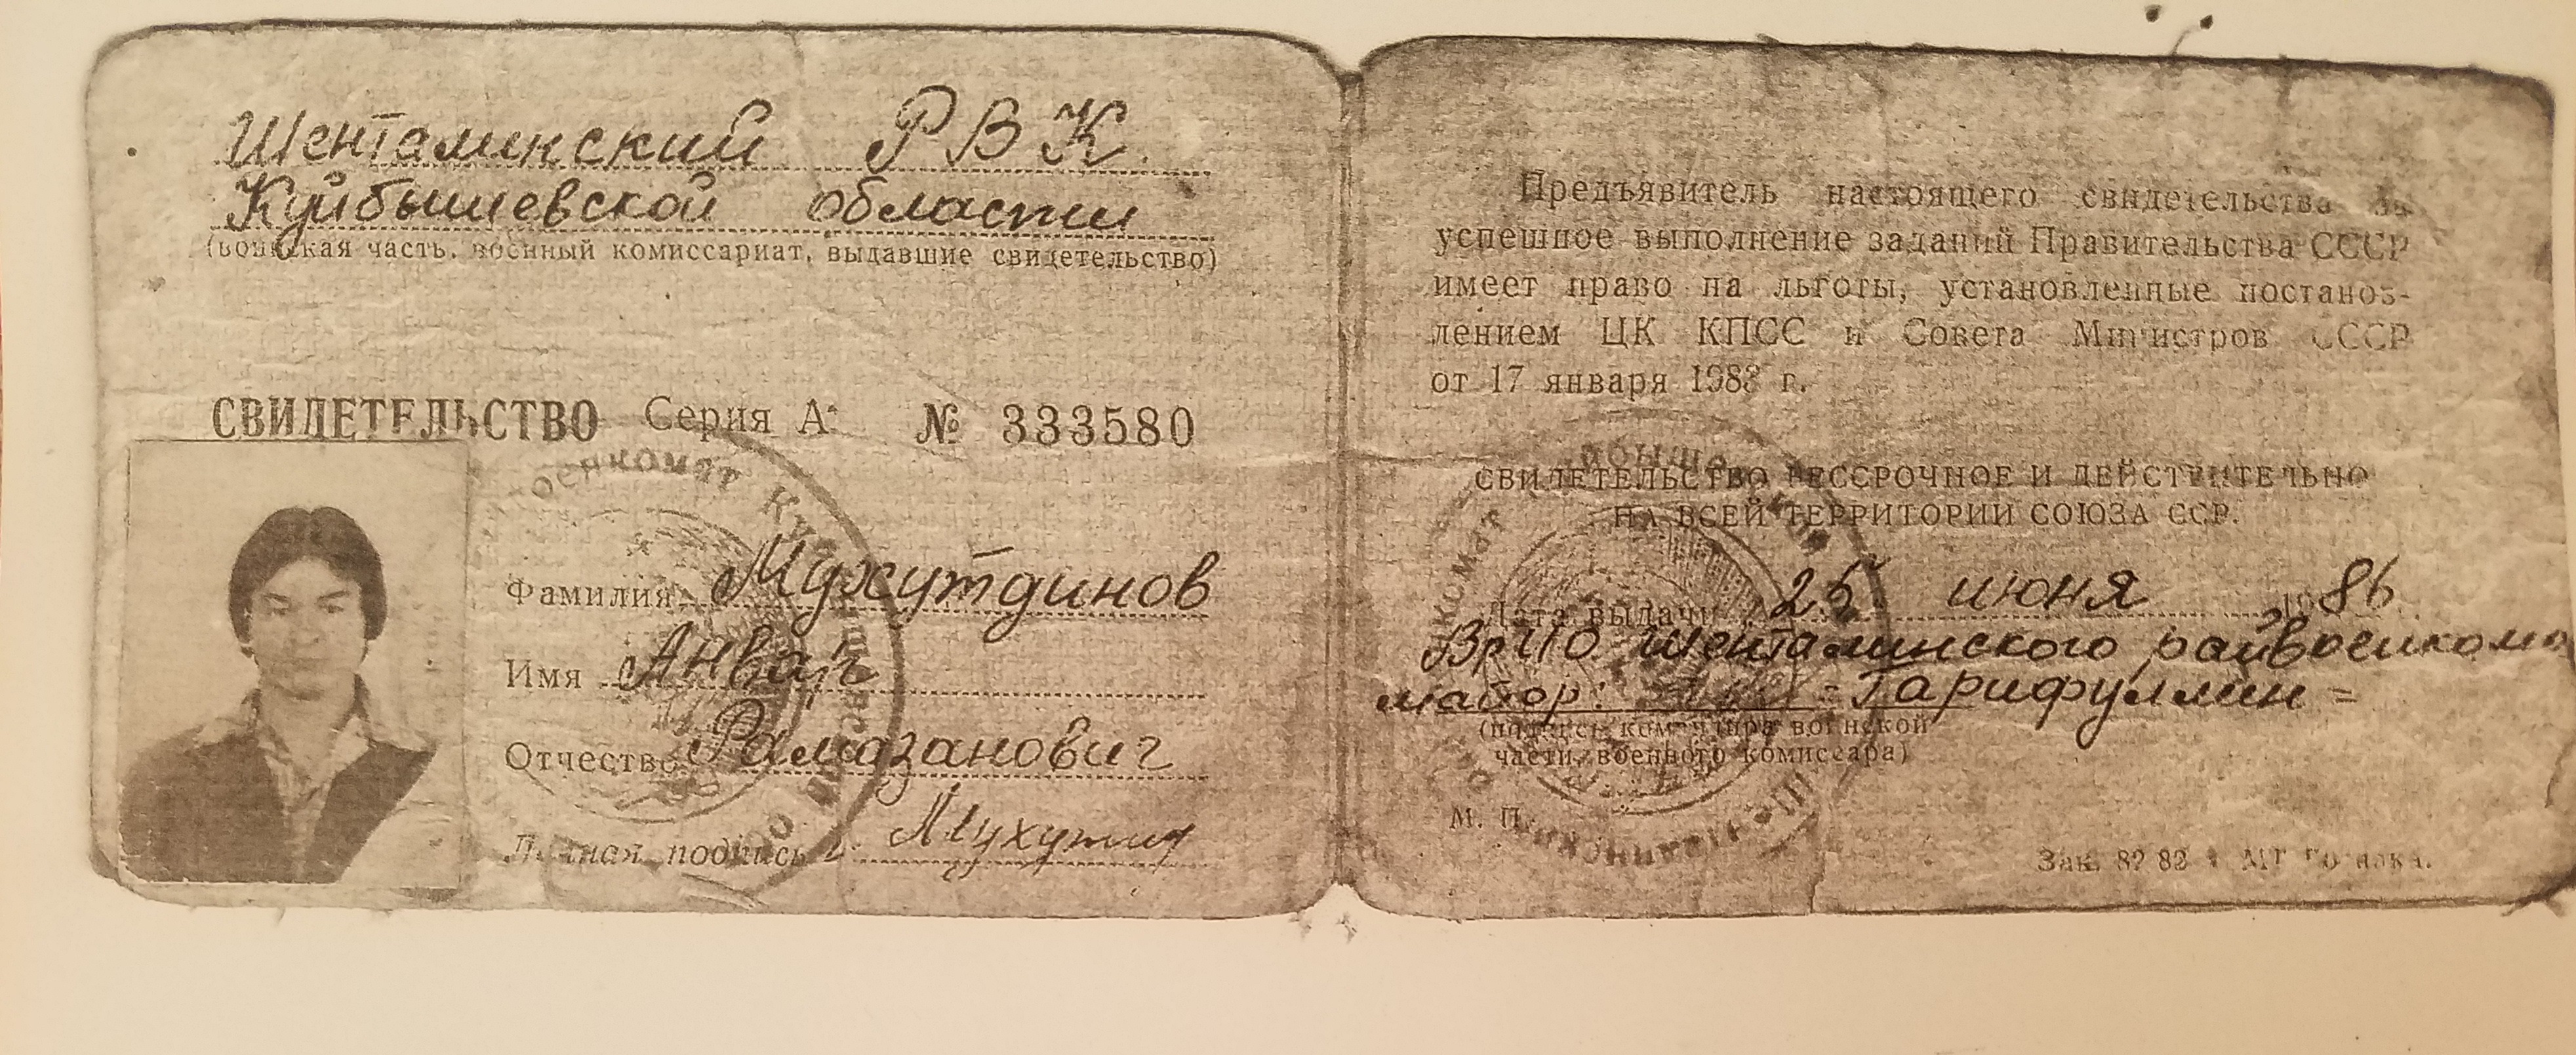 Шенталинский РВК
Куйбышевской области
(воинская часть, военный комиссариат, выдавшие свидетельство)
СВИДЕТЕЛЬСТВО Серия А № 333580
Фамилия Мухутдинов
Имя Анвар
Отчество Рамазанович
Личная подпись
Предъявитель настоящего свидетельства за
успешное выполнение заданий Правительства СССР
имеет право на льготы, установленные постанов-
лением ЦК КПСС и Совета Министров СССР
от 17 января 1983 г.
СВИДЕТЕЛЬСТВО БЕССРОЧНОЕ И ДЕЙСТВИТЕЛЬНО
НА ВСЕЙ ТЕРРИТОРИИ СОЮЗА ССР.
Дата выдачи 25 июня 1986
ВрИО Шенталинского райвоенкома
майор: =Гарифуллин=
(подпись командира воинской
части, военного комиссара)
М. П.
Зак.